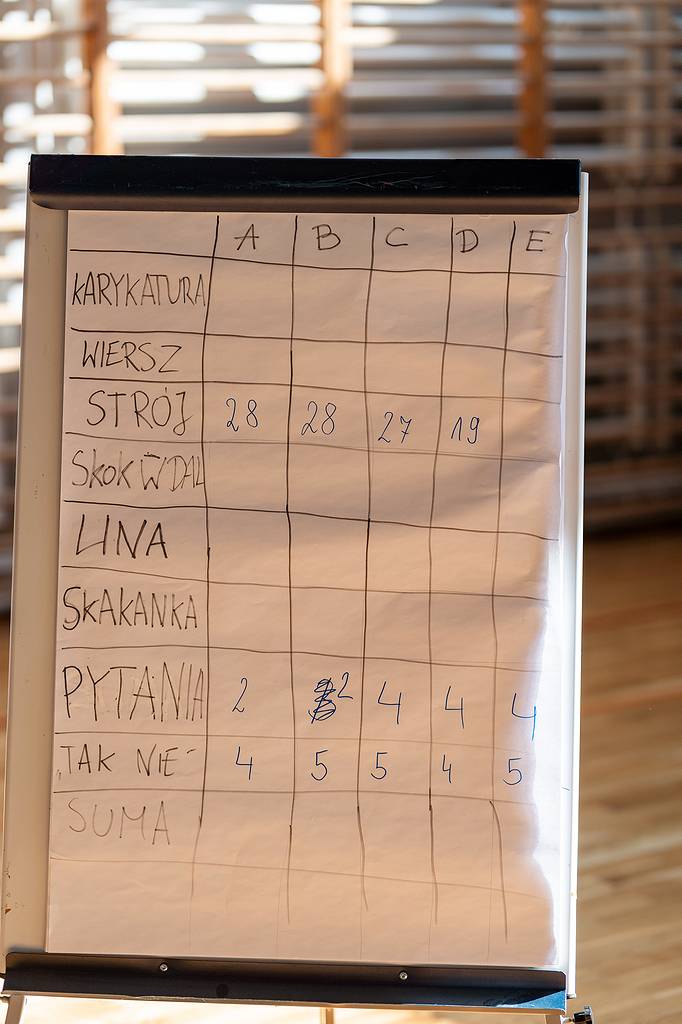 A B C D E
KARYKATURA
WIERSZ
STRÓJ 28 28 27 19
SKOK W DAL
LINA
SKAKANKA
PYTANIA 2 2 4 4 4
"TAK NIE" 4 5 5 4 5
SUMA